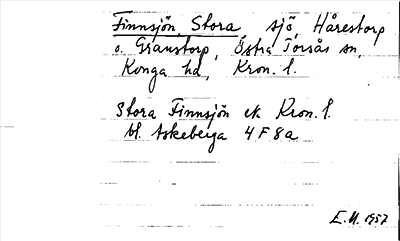 Finnsjön, Stora, sjö, Hårestorp
o. Granstorp, Östra Torsås sn,
Konga hd, Kron. l.
Stora Finnsjön ek. Kron. l.
bl. Askeberga 4 F 8 a
E.M. 1957